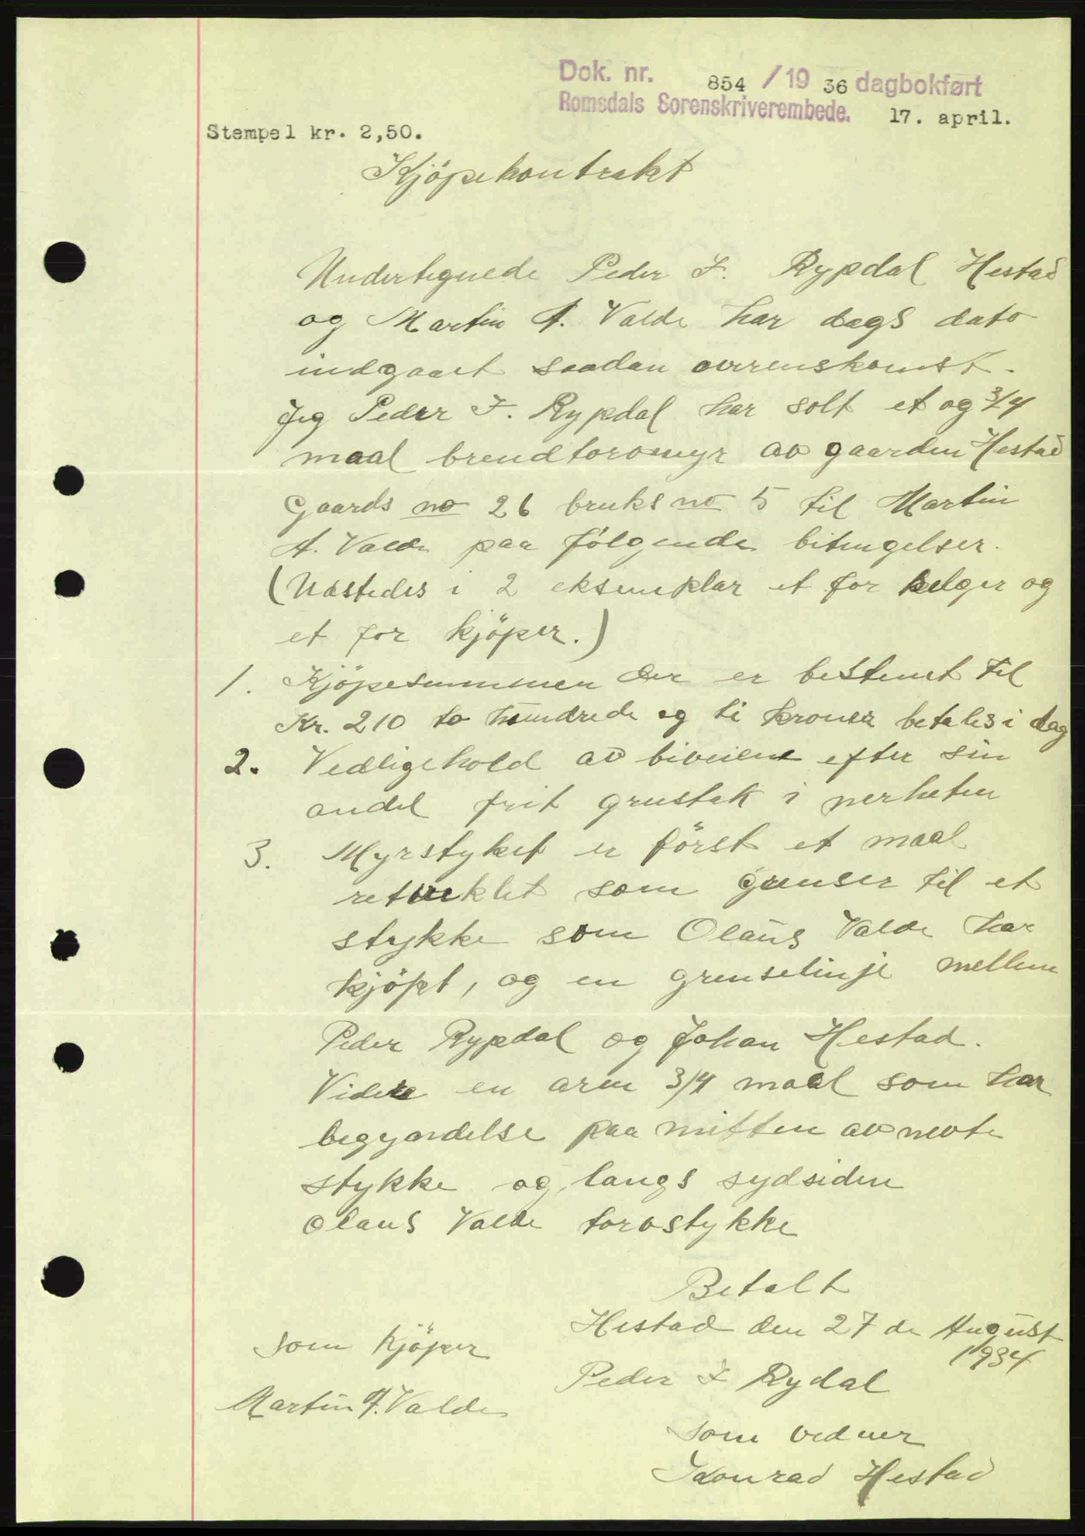 Dok. nr. 854 / 19 36 dagbokført
Romsdals Sorenskriverembede. 17. april.
Stempel kr. 2,50.
Kjöpekontrakt
Undertegnede Peder I. Rypdal Hestad
og Martin A. Valde har dags dato
indgaaet saadan overenskomst.
Jeg Peder I. Rypdal har solt et og 3/4
maal brendtorvmyr av gaarden Hestad
Gaards no 26 bruks no 5 til Martin
A. Valde paa følgende bitingelser.
(Utstedes i 2 eksemplar et for selger og
et for kjöper.)
1. Kjöpesummen der er bestemt til
Kr. 210 to hundrede og ti kroner betales i dag
2. Vedligehold av biveiene efter sin
andel frit grustak i nerheten
3. Myrstyket er först et maal
retvinklet som grenser til et
stykke som Olaus Valde har
kjöpt, og en grenselinje mellem
Peder Rypdal og Johan Hestad.
Videre en arm 3/4 maal som har
begyndelse paa mitten av nevte
stykke og langs sydsiden
Olaus Valde torvstykke
Betalt
Hestad den 27 de August
1934
som kjöper
Peder I Rydal
Martin A. Valde
som vidner
Konrad Hestad